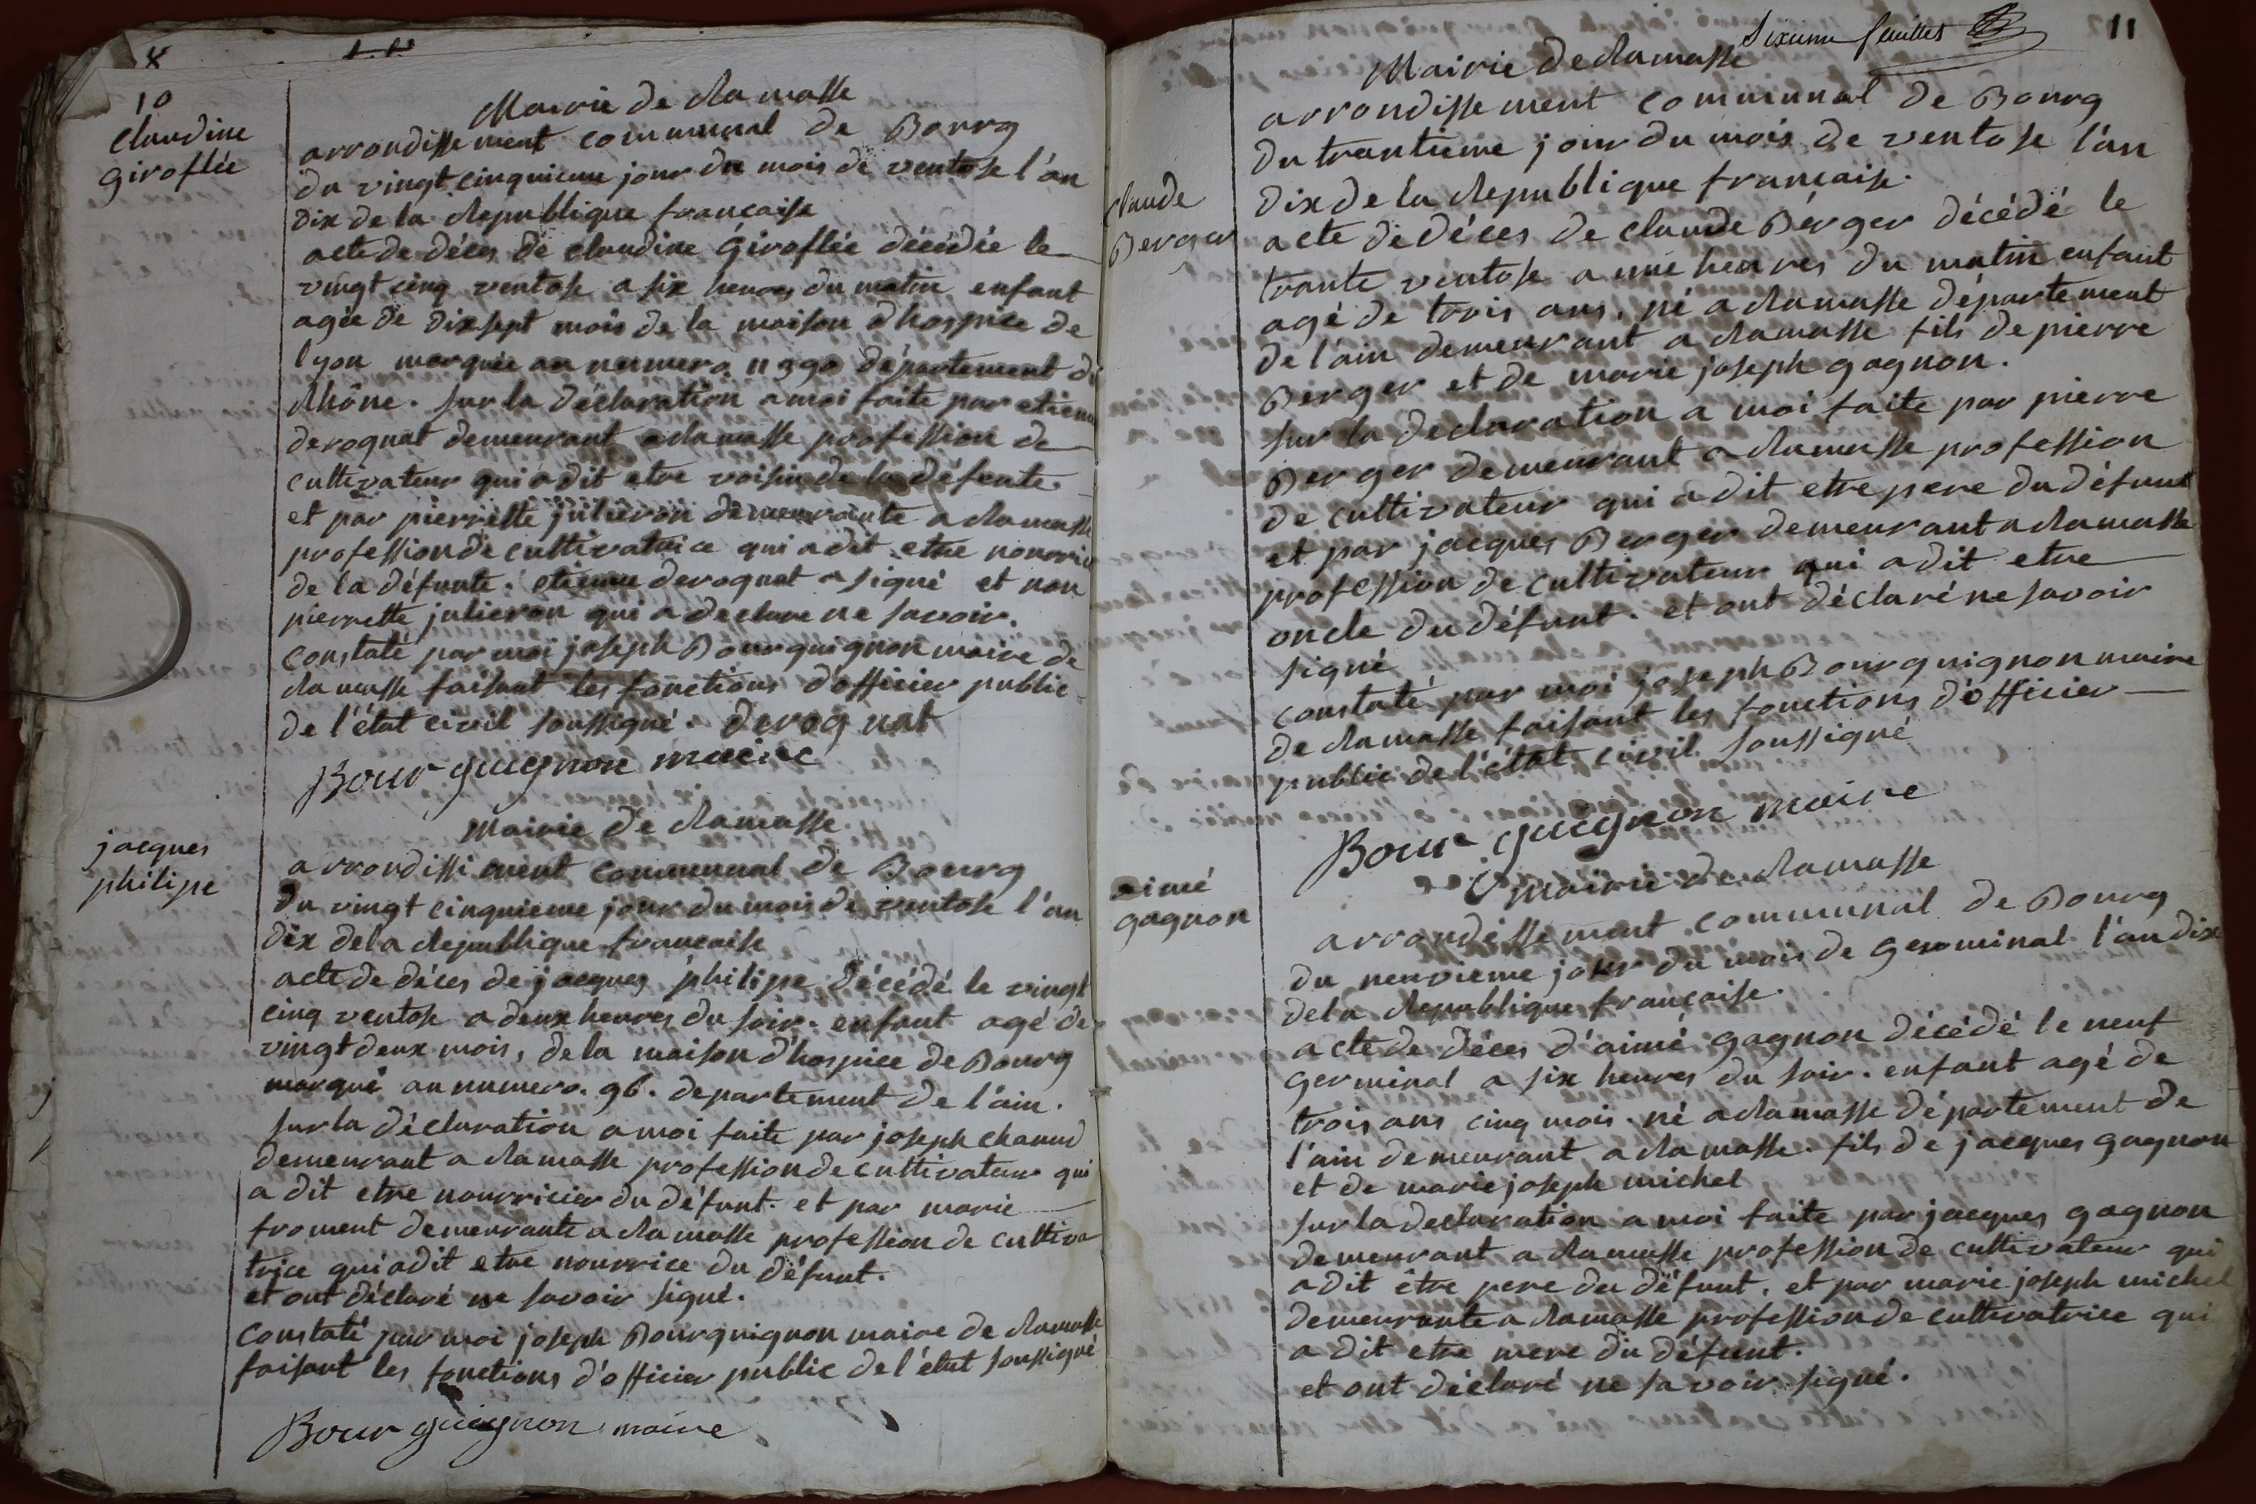 10
claudine
giroflée
Mairie de Ramasse
arrondissement communal de Bourg
du vingt cinquieme jour du mois de ventose l'an
dix de la Republique francaise
acte de déces de claudine Giroflée décédée le
vingt cinq ventose a six heures du matin enfant
agée de dixsept mois de la maison dhospice de
lyon marquée au numero 11390 département du
Rhône. sur la déclaration a moi faite par etienne
derognat demeurant a Ramasse profession de
cultivateur qui a dit etre voisin de la défunte.
et par pierrette julieron demeurante a Ramasse
profession de cultivatrice qui a dit etre nourrice
de la défunte. etienne derognat a signé et non
pierrette julieron qui a declare ne savoir.
constaté par moi joseph Bourguignon maire de
Ramasse faisant les fonctions d'officier public
de l'état civil soussigné. derognat
Bourguignon maire
jacques
philipe
Mairie de Ramasse
arrondissement communal de Bourg
Du vingt cinquieme jour du mois de ventose l'an
dix de la Republique francaise
acte de déces de jacques philipe décédé le vingt
cinq ventose a deux heures du soir. enfant agé de
vingt deux mois, de la maison d'hospice de Bourg
marqué au numero. 96. departement de l'ain.
sur la déclaration a moi faite par joseph chanud
demeurant a Ramasse profession de cultivateur qui
a dit etre nourricier du défunt. et par marie
froment demeurante a Ramasse profession de cultiva
trice qui a dit etre nourrice du défunt.
et ont déclaré ne savoir signé.
Constaté par moi joseph Bourguignon maire de Ramasse
faisant les fonctions d'officier public de l'état soussigné
Bourguignon maire
sixieme feuillet
11
Mairie de Ramasse
arrondissement communal de Bourg
du trantieme jour du mois de ventose l'an
dix de la Republique francaise.
claude
Berger
acte de déces de claude Bérger décédé le
trante ventose a une heures du matin enfant
agé de trois ans, né a Ramasse département
de l'ain demeurant a Ramasse fils de pierre
Berger et de marie joseph gagnon.
sur la declaration a moi faite par pierre
Berger demeurant a Ramasse profession
de cultivateur qui a dit etre pere du défunt
et par jacques Berger demeurant a Ramasse
profession de cultivateur qui a dit etre
oncle du défunt. et ont déclaré ne savoir
signé
constaté par moi joseph Bourguignon maire
de Ramasse faisant les fonctions d'officier
public de l'état civil soussigné
Bourguignon maire
aimé
gagnon
mairie de Ramasse
arrondissement communal de Bourg
du neuvieme jour du mois de Germinal l'an dix
de la Republique francaise.
acte de déces d'aimé gagnon décédé le neuf
Germinal a six heures du soir. enfant agé de
trois ans cinq mois. né a Ramasse département de
l'ain demeurant a Ramasse. fils de jacques gagnon
et de marie joseph michel
sur la declaration a moi faite par jacques gagnon
demeurant a Ramasse profession de cultivateur qui
a dit être pere du défunt, et par marie joseph michel
demeurante a Ramasse profession de cultivatrice qui
a dit etre mere du défunt.
et ont déclaré ne savoir signé.